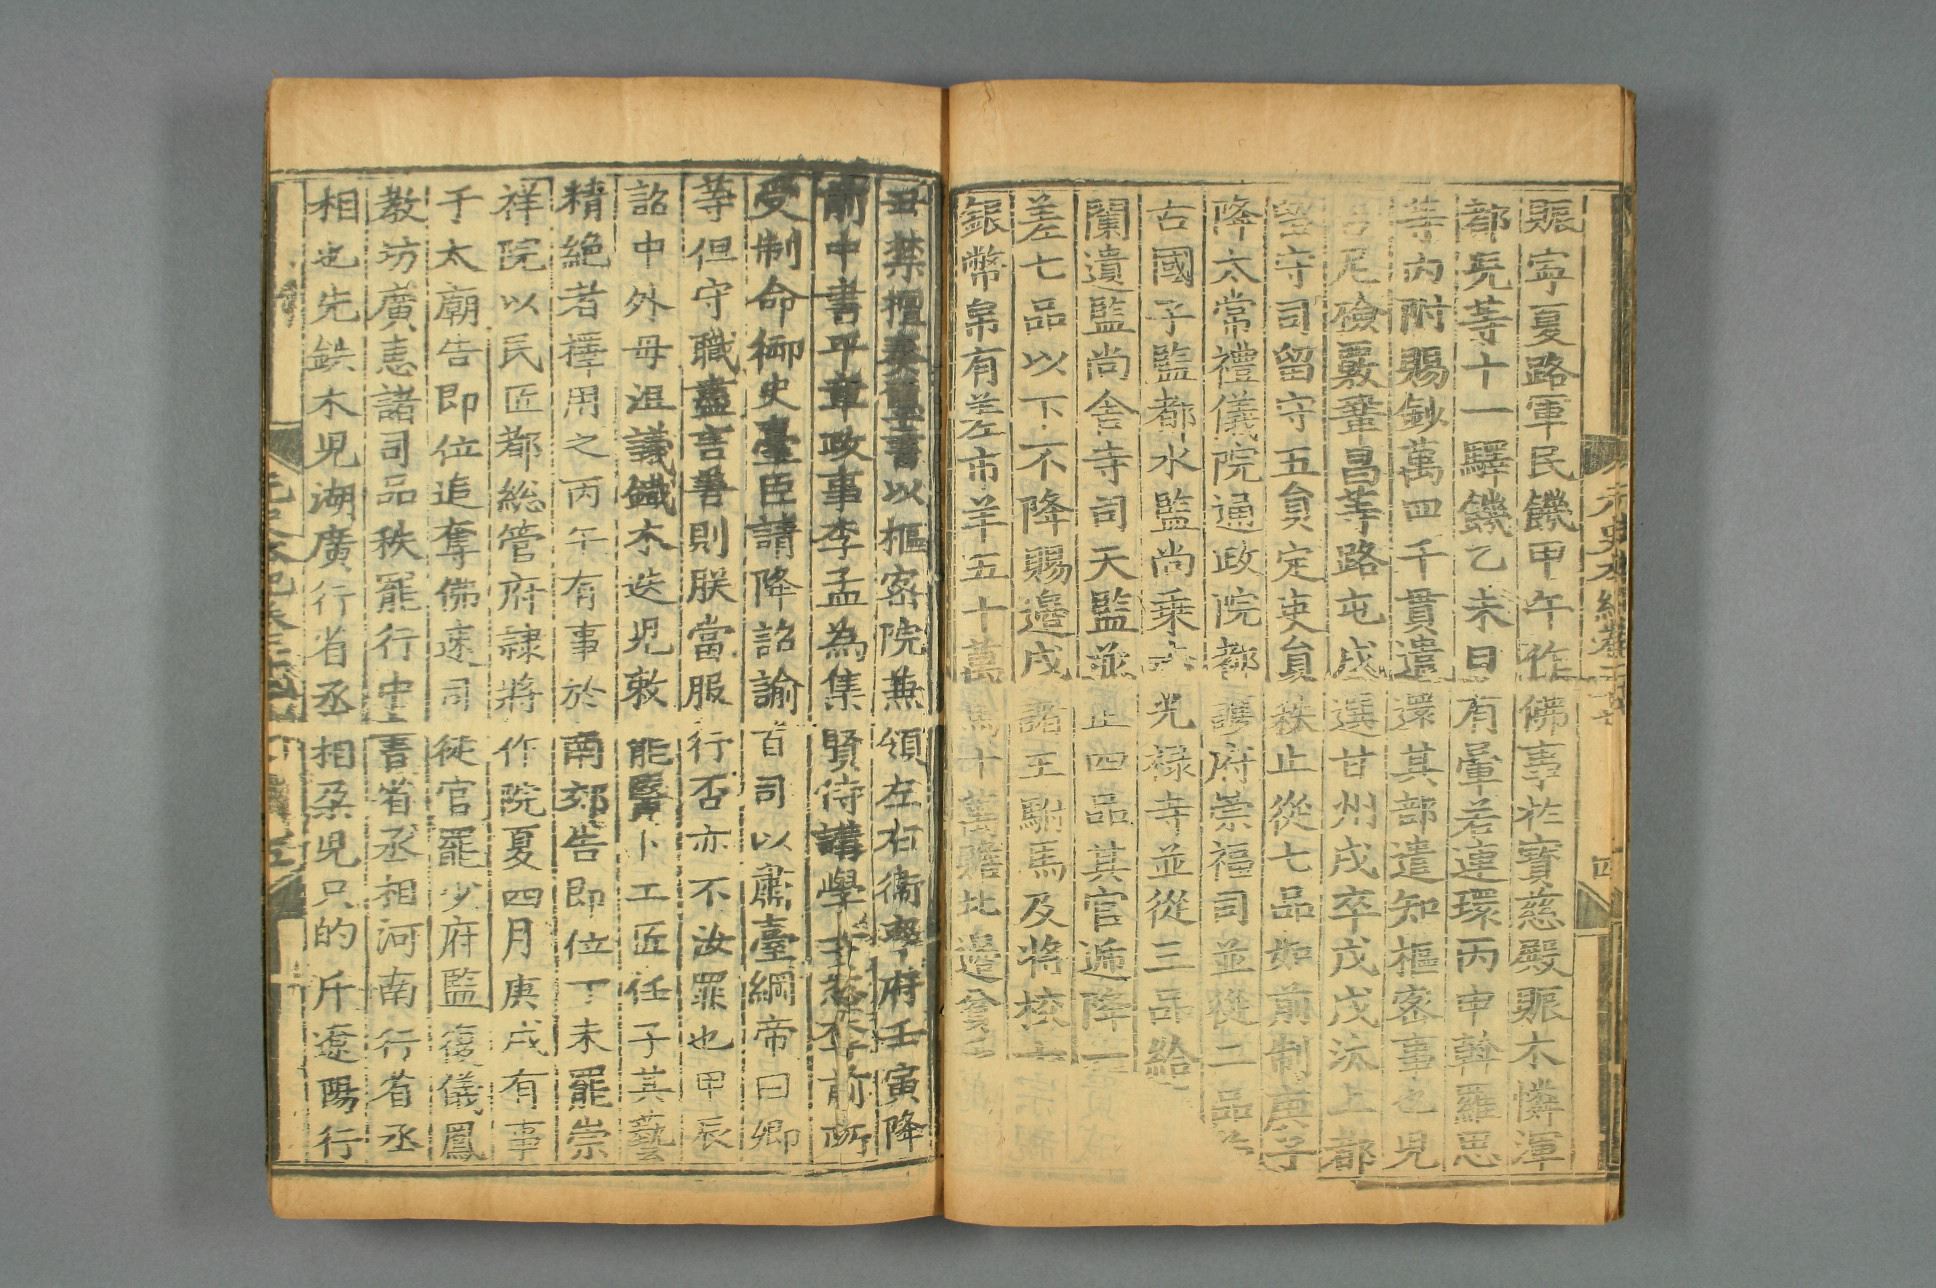 元史本紀卷二十七
四
賑寧夏路軍民饑甲午作佛事於寶慈殿賑木憐渾
都兒等十一驛饑乙未日有暈若連環丙申斡羅思
等內附賜鈔萬四千貫遣還其部遣知樞密事也兒
吉尼檢覈鞏昌等路屯戍選甘州戍卒戊戌汰上都
留守司留守五員定吏員秩止從七品如前制庚子
降太常禮儀院通政院都護府崇福司並從二品
古國子監都水監尚乘寺光祿寺並從三品給
闌遺監尚舍寺司天監並正四品其官遞降一
差七品以下不降賜邊戍諸王駙馬及將校
銀幣帛有差市羊五十萬馬十萬贍北邊貧
丑禁擅奏璽書以樞密院兼領左右衛率府壬寅降
前中書平章政事李孟為集賢侍講學士悉奪前所
受制命御史臺臣請降詔諭百司以肅臺綱帝曰卿
等但守職盡言善則朕當服行否亦不汝罪也甲辰
詔中外毋沮議鐵木迭兒敕能醫卜工匠任子其藝
精絕者擇用之丙午有事於南郊告即位丁未罷崇
祥院以民匠都総管府隷將作院夏四月庚戌有事
于太廟告即位追奪佛速司徒官罷少府監復儀鳳
教坊廣惠諸司品秩罷行中書省丞相河南行省丞
相也先鉄木兒湖廣行省丞相朶兒只的斤遼陽行